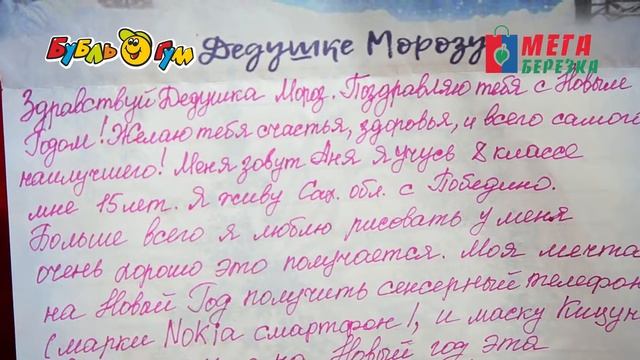 БУБЛЬ ГУМ ДЕДУШКЕ МОРОЗУ МЕГА
БЕРЕЗКА
Здравствуй Дедушка Мороз. Поздравляю тебя с Новым
Годом! Желаю тебя счастья, здоровья, и всего самого
наилучшего! Меня зовут Аня я учусь 8 классе
мне 15 лет. Я живу Сах. обл. с Победино.
Больше всего я люблю рисовать у меня
очень хорошо это получается. Моя мечта
на Новый Год получить сенсерный телефон
(марки Nokia смартфон!, и маску Кицун
на Новый год эта